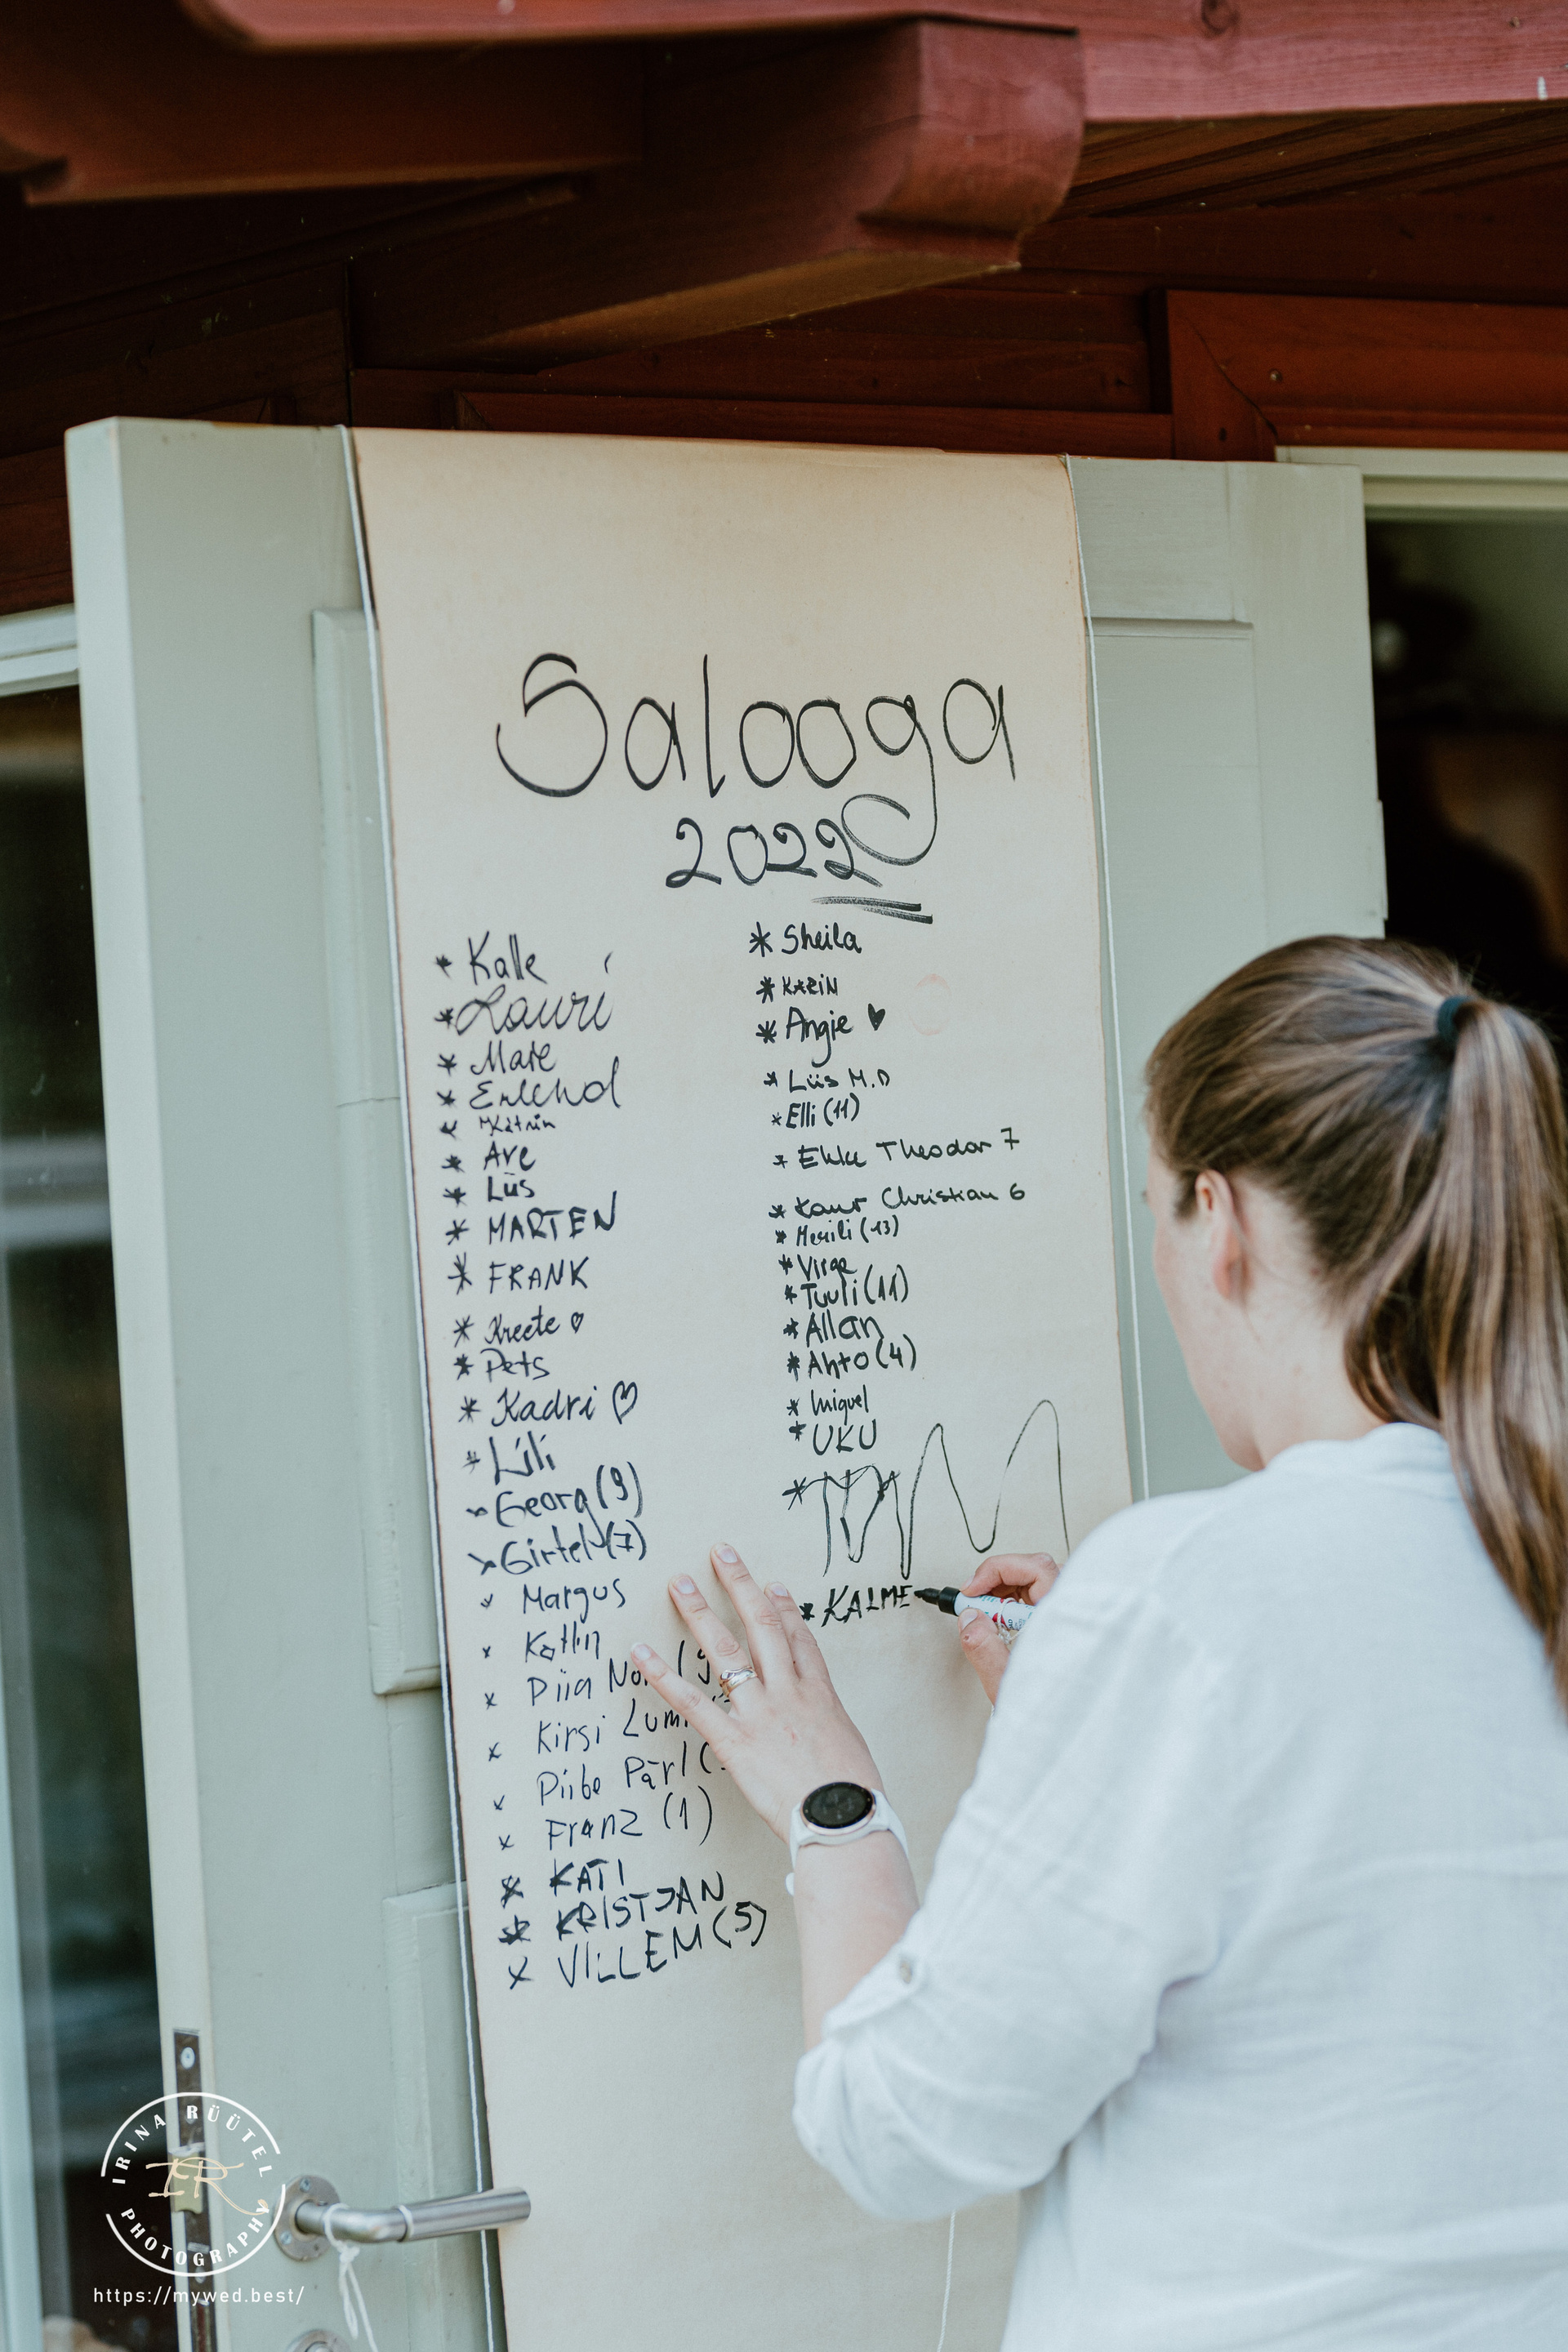 Salooga
2022
* Kalle
* Lauri
* Mare
* Erlend
* Katrin
* Ave
* Liis
* MARTEN
* FRANK
* Kreete ♡
* Pets
* Kadri ♡
* Lili
* Georg (9)
* Girtel (7)
* Margus
x Katlin
x Piia
x Kirsi
x Piibe Pärl
x Franz (1)
* KATI
* KRISTJAN
x VILLEM (5)
* Sheila
* KARIN
* Angie ♥
* Liis M.D
* Elli (11)
* Theodor 7
* Kaur Christian 6
* Merili (13)
* Virge
* Tuuli (11)
* Allan
* Ahto (4)
* Miguel
* UKU
* KALME
IRINA RÜÜTEL
IR
PHOTOGRAPHY
https://mywed.best/